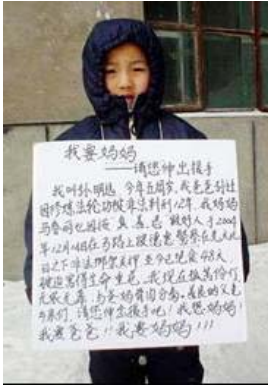 我要妈妈
——请您伸出援手
我叫孙明远 今年五周岁,我爸爸孙迁
因修炼法轮功被非法判刑12年。我妈妈
马春丽也因按真、善、忍 做好人于2004
年12月14日在马路上被德惠警察在光天化
日之下非法绑架关押 至今已绝食48天
被迫害得生命垂危,我现在孤苦伶仃
无依无靠,与爸妈骨肉分离,善良的父老
乡亲们,请您伸出援手吧!我想妈妈!
我要爸爸!!我要妈妈!!!